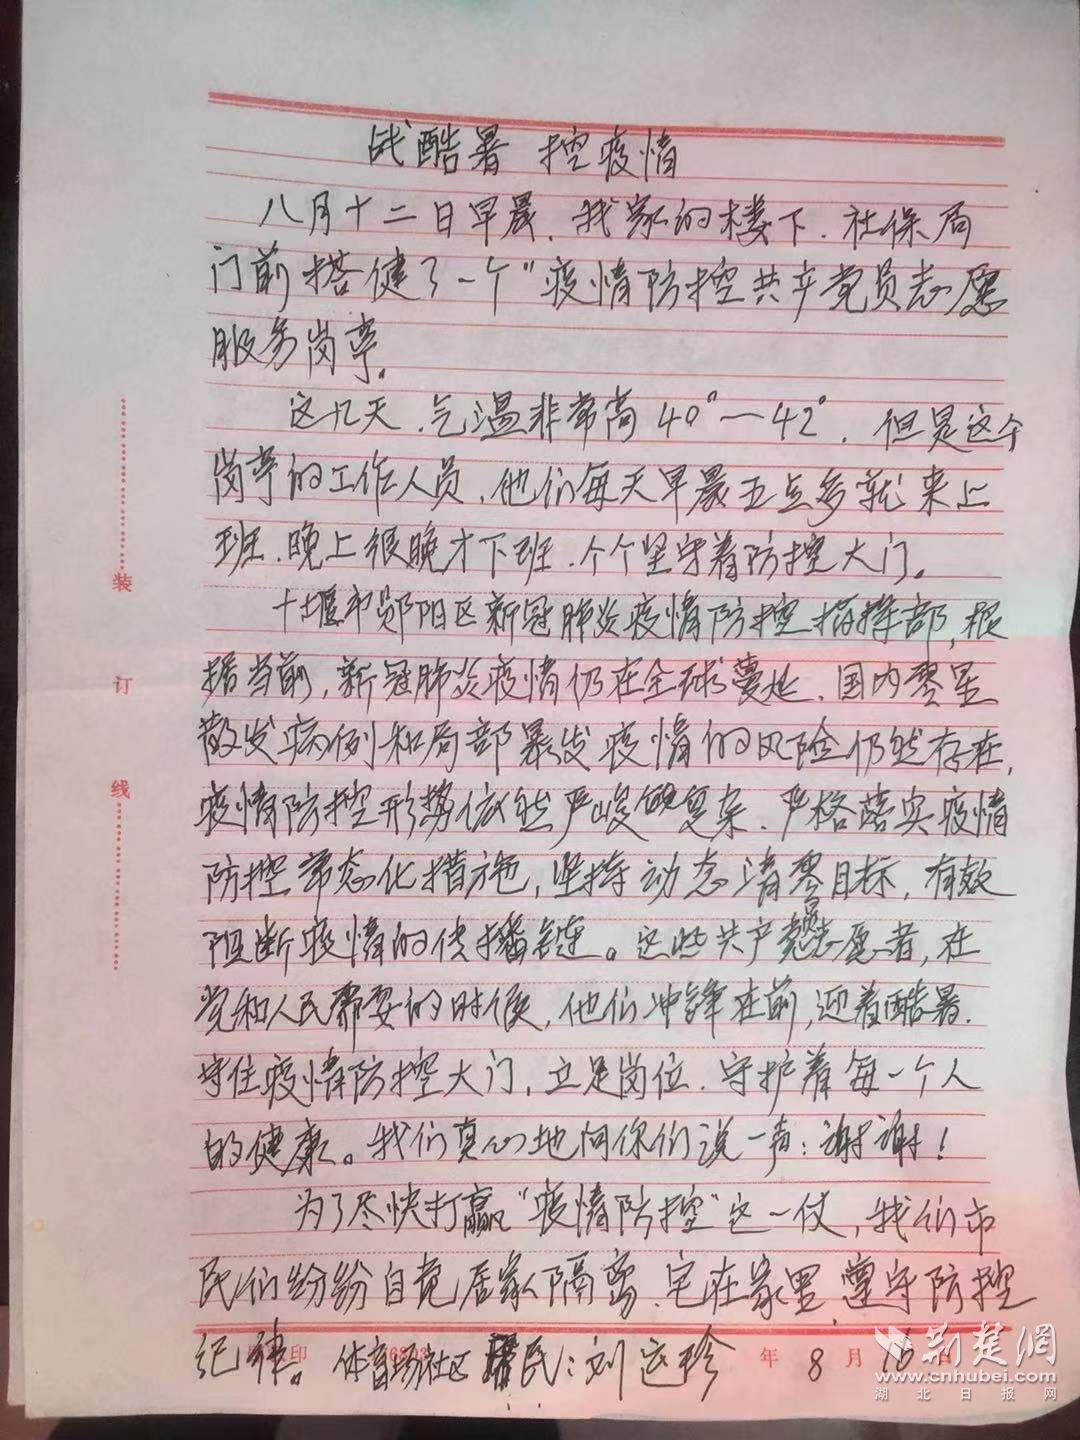 战酷暑 控疫情
八月十二日早晨,我家的楼下,社保局
门前搭健了一个“疫情防控共产党员志愿
服务岗亭。
这几天,气温非常高40°—42°,但是这个
岗亭的工作人员,他们每天早晨五点多就来上
班,晚上很晚才下班,个个坚守着防控大门。
十堰市郧阳区新冠肺炎疫情防控指挥部,根
据当前,新冠肺炎疫情仍在全球蔓延,国内零星
散发病例和局部暴发疫情的风险仍然存在,
疫情防控形势依然严峻复杂,严格落实疫情
防控常态化措施,坚持动态清零目标,有效
阻断疫情的传播链。这些共产党志愿者,在
党和人民需要的时候,他们冲锋在前,迎着酷暑,
守住疫情防控大门,立足岗位,守护着每一个人
的健康。我们真心地向你们说一声:谢谢!
为了尽快打赢“疫情防控”这一仗,我们市
民们纷纷自觉居家隔离,宅在家里,遵守防控
纪律。体育场社区居民:刘运珍 年8月16日
装
订
线
印
荆楚网
www.cnhubei.com
湖北日报网